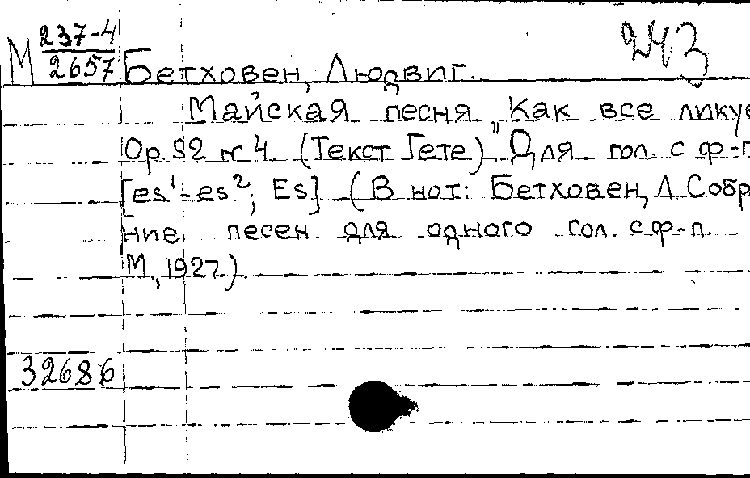 М 237-4 243
2657 Бетховен, Людвиг.
Майская песня „Как все ликуе
Op. 52 № 4 (Текст Гете)" Для гол. с ф-п
[es¹-es²; Es] (В нот: Бетховен, Л. Собра
ние песен для одного гол. с ф-п.
М., 1927.)
32686